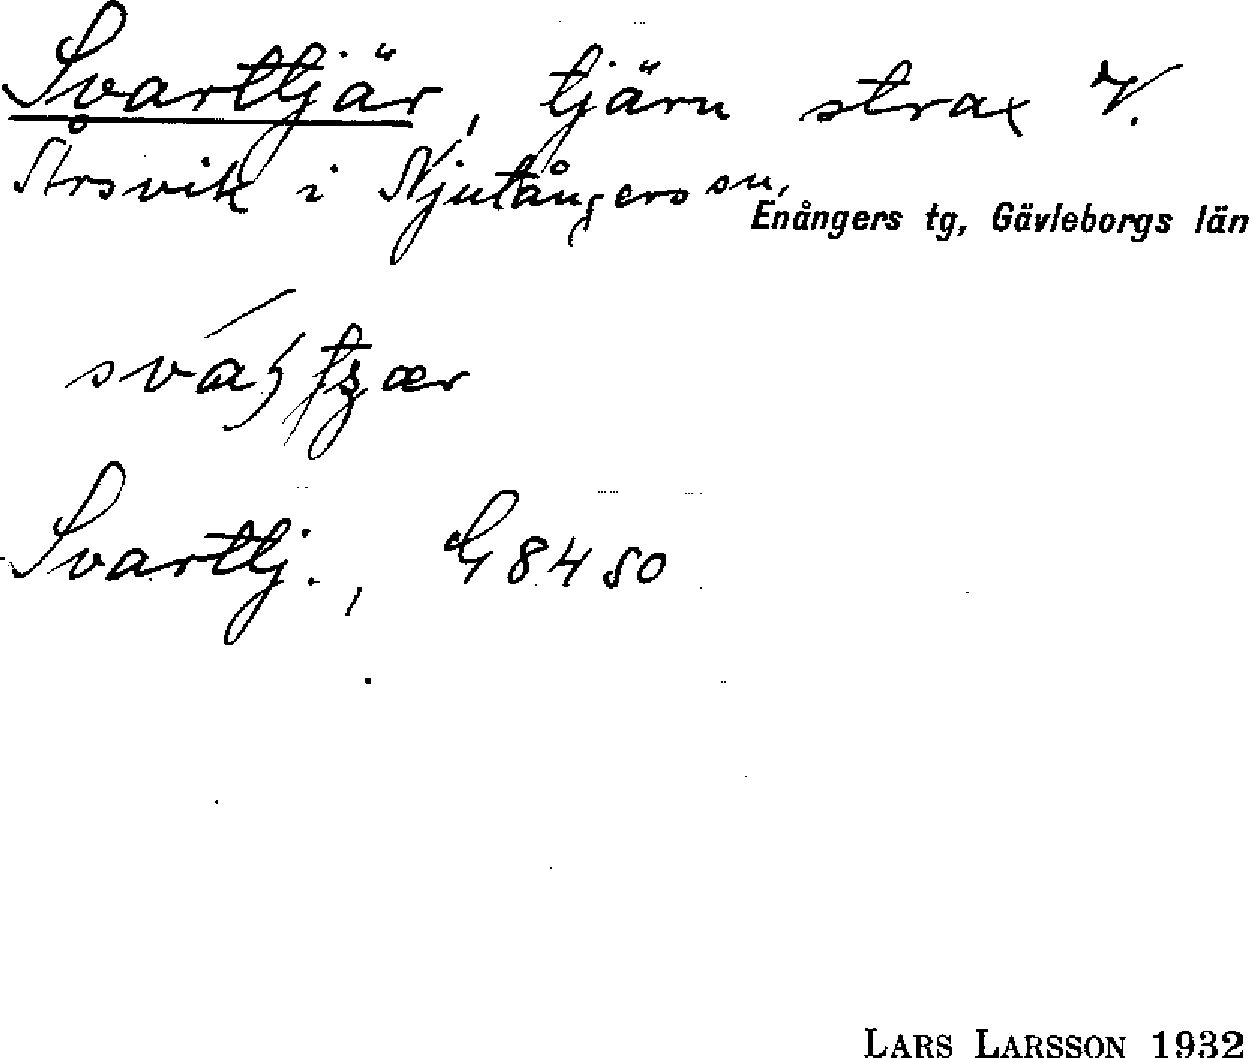 Svarttjär, tjärn strax V.
Årsvik i Njutångers sn,
Enångers tg, Gävleborgs län
Svarttj., G 8450
LARS LARSSON 1932